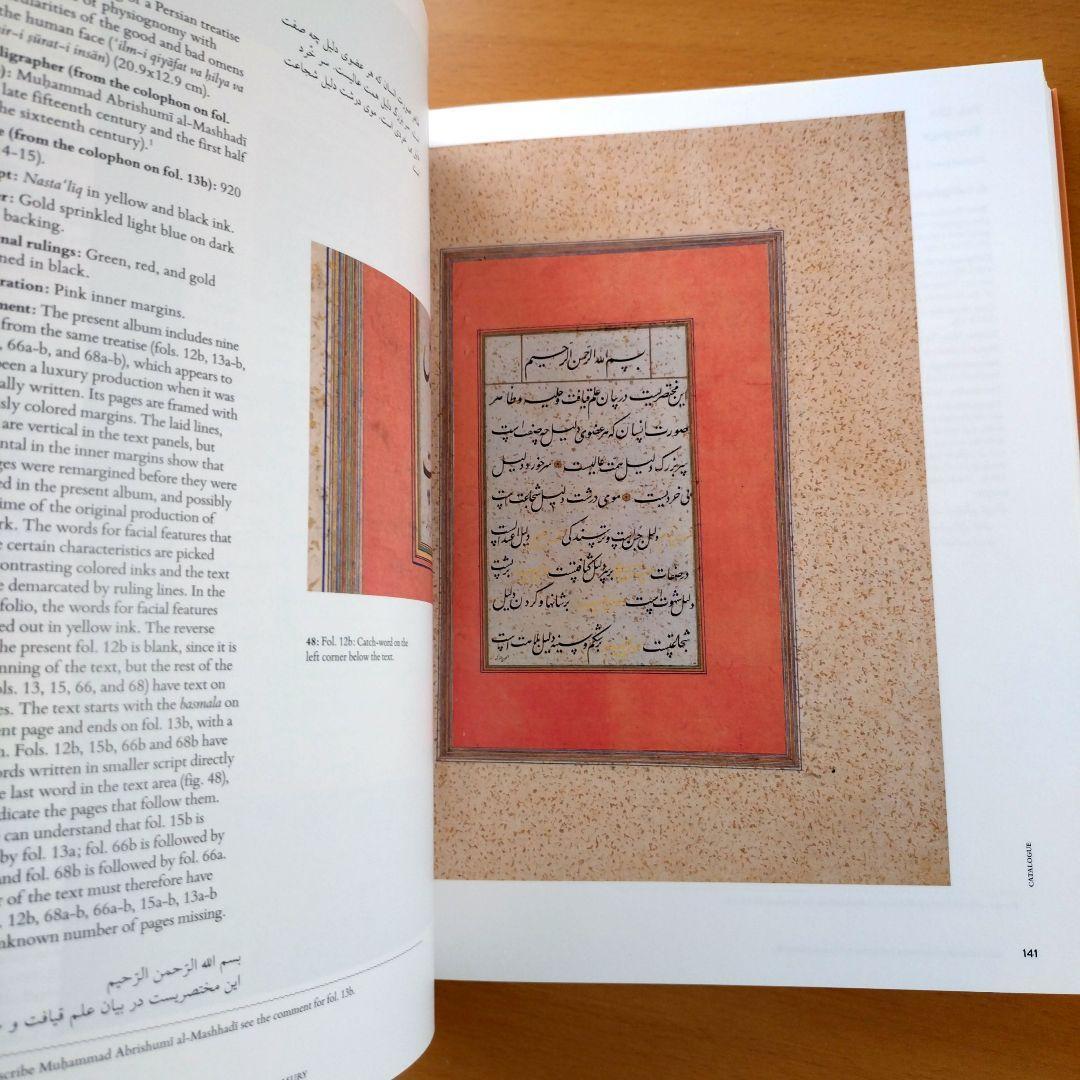 of a Persian treatise
of physiognomy with
ularities of the good and bad omens
the human face (ʿilm-i qiyāfat va ḥilya va
ir-i ṣūrat-i insān) (20.9x12.9 cm).
ligrapher (from the colophon on fol.
): Muḥammad Abrishumī al-Mashhadī
late fifteenth century and the first half
he sixteenth century).¹
e (from the colophon on fol. 13b): 920
4-15).
pt: Nastaʿliq in yellow and black ink.
er: Gold sprinkled light blue on dark
backing.
nal rulings: Green, red, and gold
ned in black.
ration: Pink inner margins.
ment: The present album includes nine
from the same treatise (fols. 12b, 13a-b,
, 66a-b, and 68a-b), which appears to
been a luxury production when it was
ally written. Its pages are framed with
sly colored margins. The laid lines,
are vertical in the text panels, but
ntal in the inner margins show that
ges were remargined before they were
ed in the present album, and possibly
ime of the original production of
rk. The words for facial features that
e certain characteristics are picked
contrasting colored inks and the text
e demarcated by ruling lines. In the
folio, the words for facial features
ed out in yellow ink. The reverse
he present fol. 12b is blank, since it is
nning of the text, but the rest of the
ols. 13, 15, 66, and 68) have text on
es. The text starts with the basmala on
ent page and ends on fol. 13b, with a
n. Fols. 12b, 15b, 66b and 68b have
ords written in smaller script directly
e last word in the text area (fig. 48),
dicate the pages that follow them.
can understand that fol. 15b is
by fol. 13a; fol. 66b is followed by
and fol. 68b is followed by fol. 66a.
r of the text must therefore have
. 12b, 68a-b, 66a-b, 15a-b, 13a-b
nknown number of pages missing.
بسم الله الرّحمن الرّحیم
این مختصریست در بیان علم قیافت و
scribe Muḥammad Abrishumī al-Mashhadī see the comment for fol. 13b.
صورت انسان که هر عضوی دلیل چه صفت
دلیل همت عالیست. سر خُرد
است. موی درشت دلیل شجاعت
48: Fol. 12b: Catch-word on the
left corner below the text.
بسم الله الرحمن الرحیم
این مختصریست در بیان علم قیافت و حلیه و ظاهر
صورت انسان که هر عضوی دلیل چه صفت است
سر بزرک دلیل همت عالیست سر خورد دلیل
بی خردیست موی درشت دلیل شجاعت است
دلیل جبن است و پسندگی دلیل اعتدال است
در صفات بر سر دلیل کثافتست بر پشت
دلیل شهوت است بر شانها و گردن دلیل
شجاعتست بر شکم و سینه دلیل بلاهت است
CATALOGUE
141